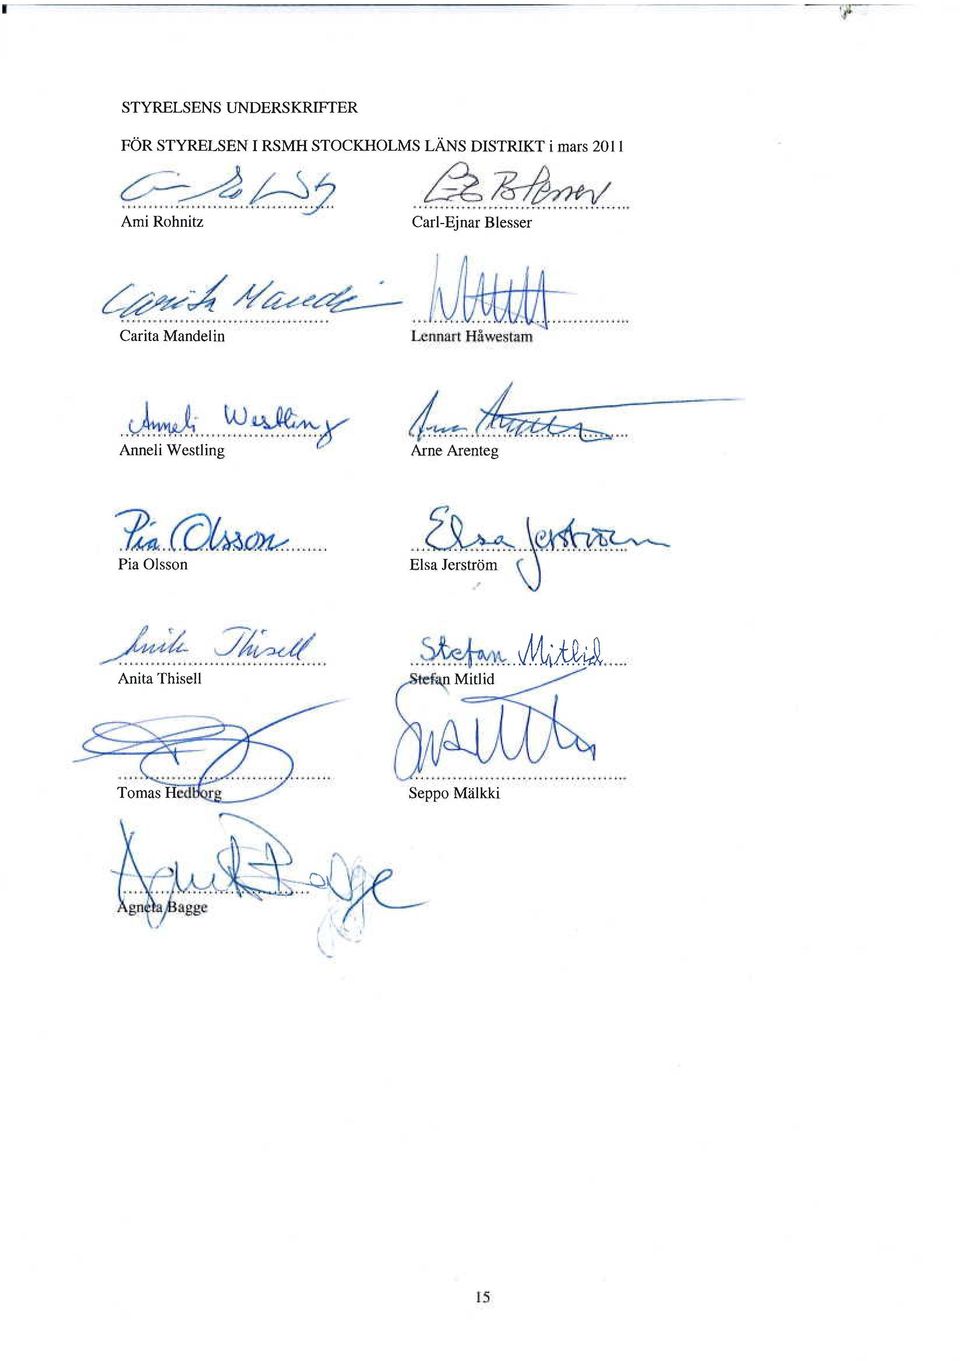 STYRELSENS UNDERSKRIFTER
FÖR STYRELSEN I RSMH STOCKHOLMS LÄNS DISTRIKT i mars 2011
Ami Rohnitz Carl-Ejnar Blesser
Carita Mandelin Lennart Håwestam
Anneli Westling
Anneli Westling Arne Arenteg
Pia Olsson Elsa Jerström
Pia Olsson Elsa Jerström
Anita Thisell Stefan Mitlid
Anita Thisell Stefan Mitlid
Tomas Hedborg Seppo Mälkki
Agneta Bagge
Agneta Bagge
15